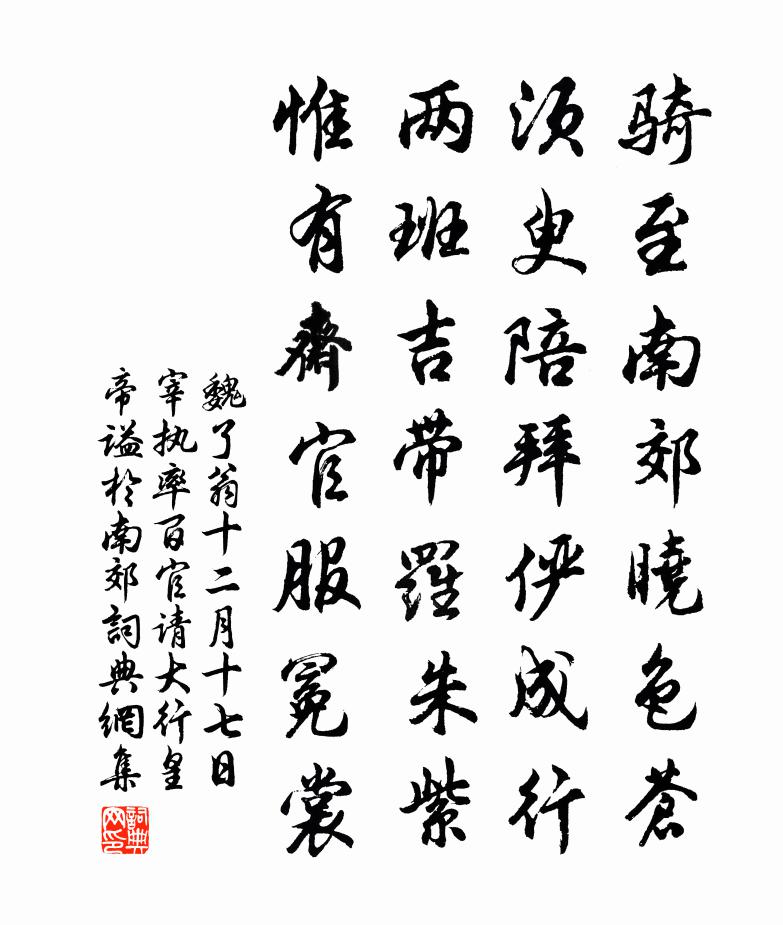 骑至南郊晓色苍
须臾陪拜俨成行
两班吉带罗朱紫
惟有斋官服冕裳
魏了翁十二月十七日
宰执率百官请大行皇
帝谥於南郊詞典網集
詞典
网印